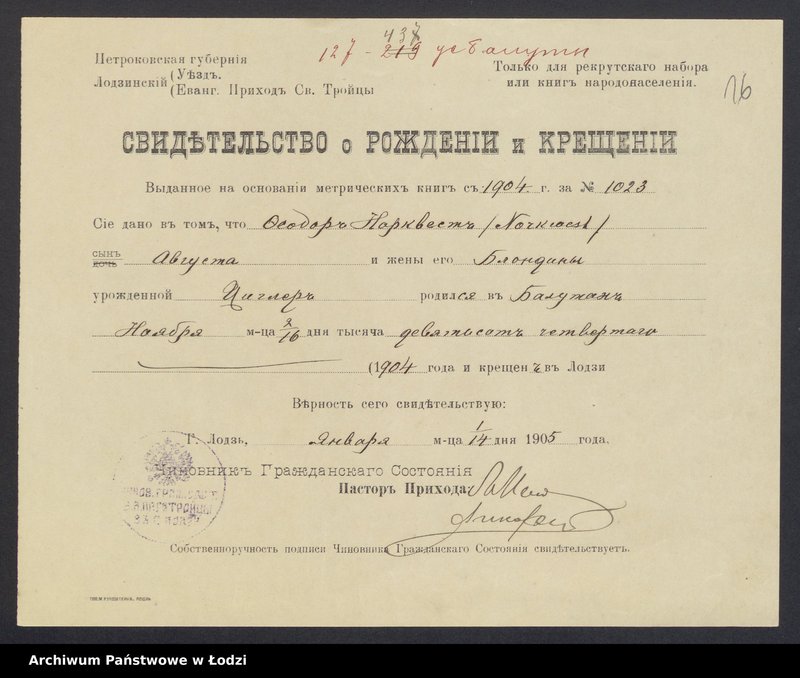 437
127 - 213
Петроковская губернія
Лодзинскій (Уѣздъ.
(Еванг. Приходъ Св. Тройцы
Только для рекрутскаго набора
или книгъ народонаселенія.
СВИДѢТЕЛЬСТВО о РОЖДЕНІИ и КРЕЩЕНІИ
Выданное на основаніи метрическихъ книгъ съ 1904 г. за № 1023
Сіе дано въ томъ, что Ѳеодоръ Норквестъ /Norkwest/
сынъ дочь Августа и жены его Блондины
урожденной Циглеръ родился въ Балутахъ
Ноября м-ца 3/16 дня тысяча девятьсотъ четвертаго
(1904 года и крещенъ въ Лодзи
Вѣрность сего свидѣтельствую:
Г. Лодзь, Января м-ца 1/14 дня 1905 года.
Чиновникъ Гражданскаго Состоянія
Пасторъ Прихода:
Собственноручность подписи Чиновника Гражданскаго Состоянія свидѣтельствуетъ.
Archiwum Państwowe w Łodzi